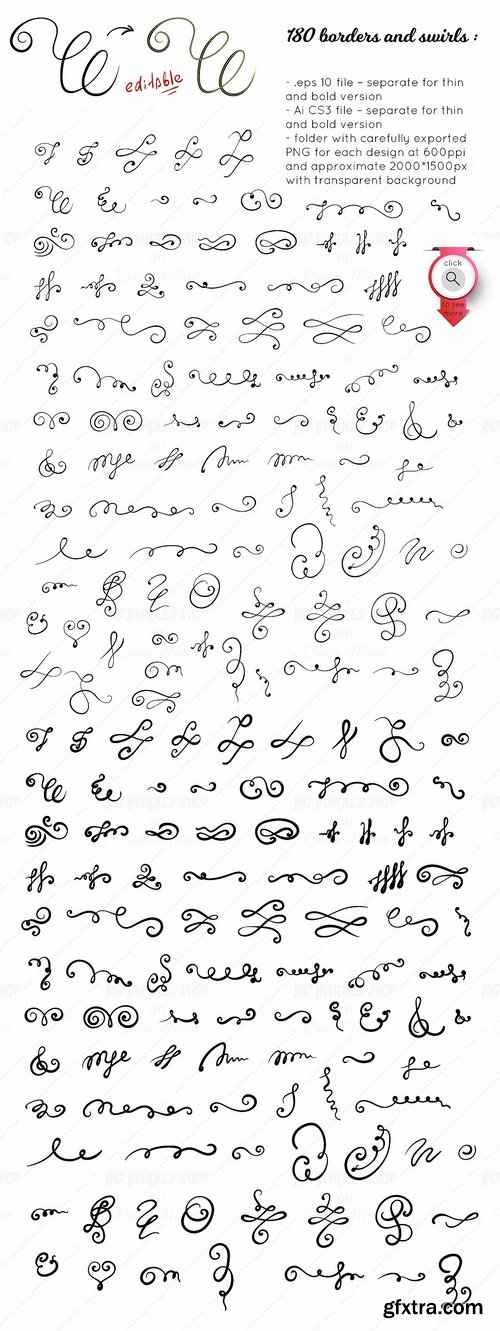 180 borders and swirls :
editable
- .eps 10 file – separate for thin
and bold version
- Ai CS3 file – separate for thin
and bold version
- folder with carefully exported
PNG for each design at 600ppi
and approximate 2000*1500px
with transparent background
click
to see
more
BIG BUNDLES SHOP
on
Creative Market
gfxtra.com